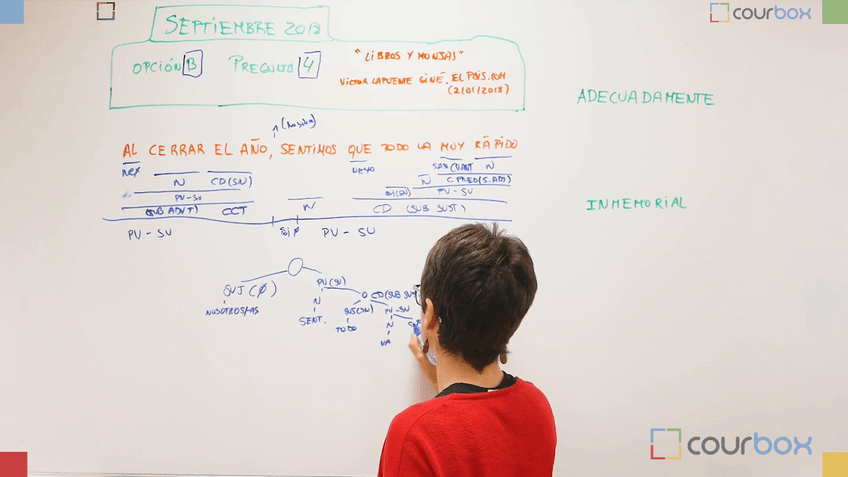 courbox
SEPTIEMBRE 2017
OPCIÓN B PREGUNTA 4
"LIBROS Y MONJAS"
VICTOR LAPUENTE GINÉ. EL PAÍS.COM
(2/01/2018)
ADECUADAMENTE
(Nosotros)
AL CERRAR EL AÑO, SENTIMOS QUE TODO VA MUY RÁPIDO
NEX NEXO CUANT N
N CD(SN) N C.PRED(S.ADJ)
PV-SV SUJ(SN) PV-SV
CCT N CD (SUB SUST)
INMEMORIAL
PV-SV PV-SV
SUJ(Ø) PV(SV)
NOSOTROS/AS N CD(SUB
SENT. SUJ(SN) PV-SV
TODO N
VA
courbox